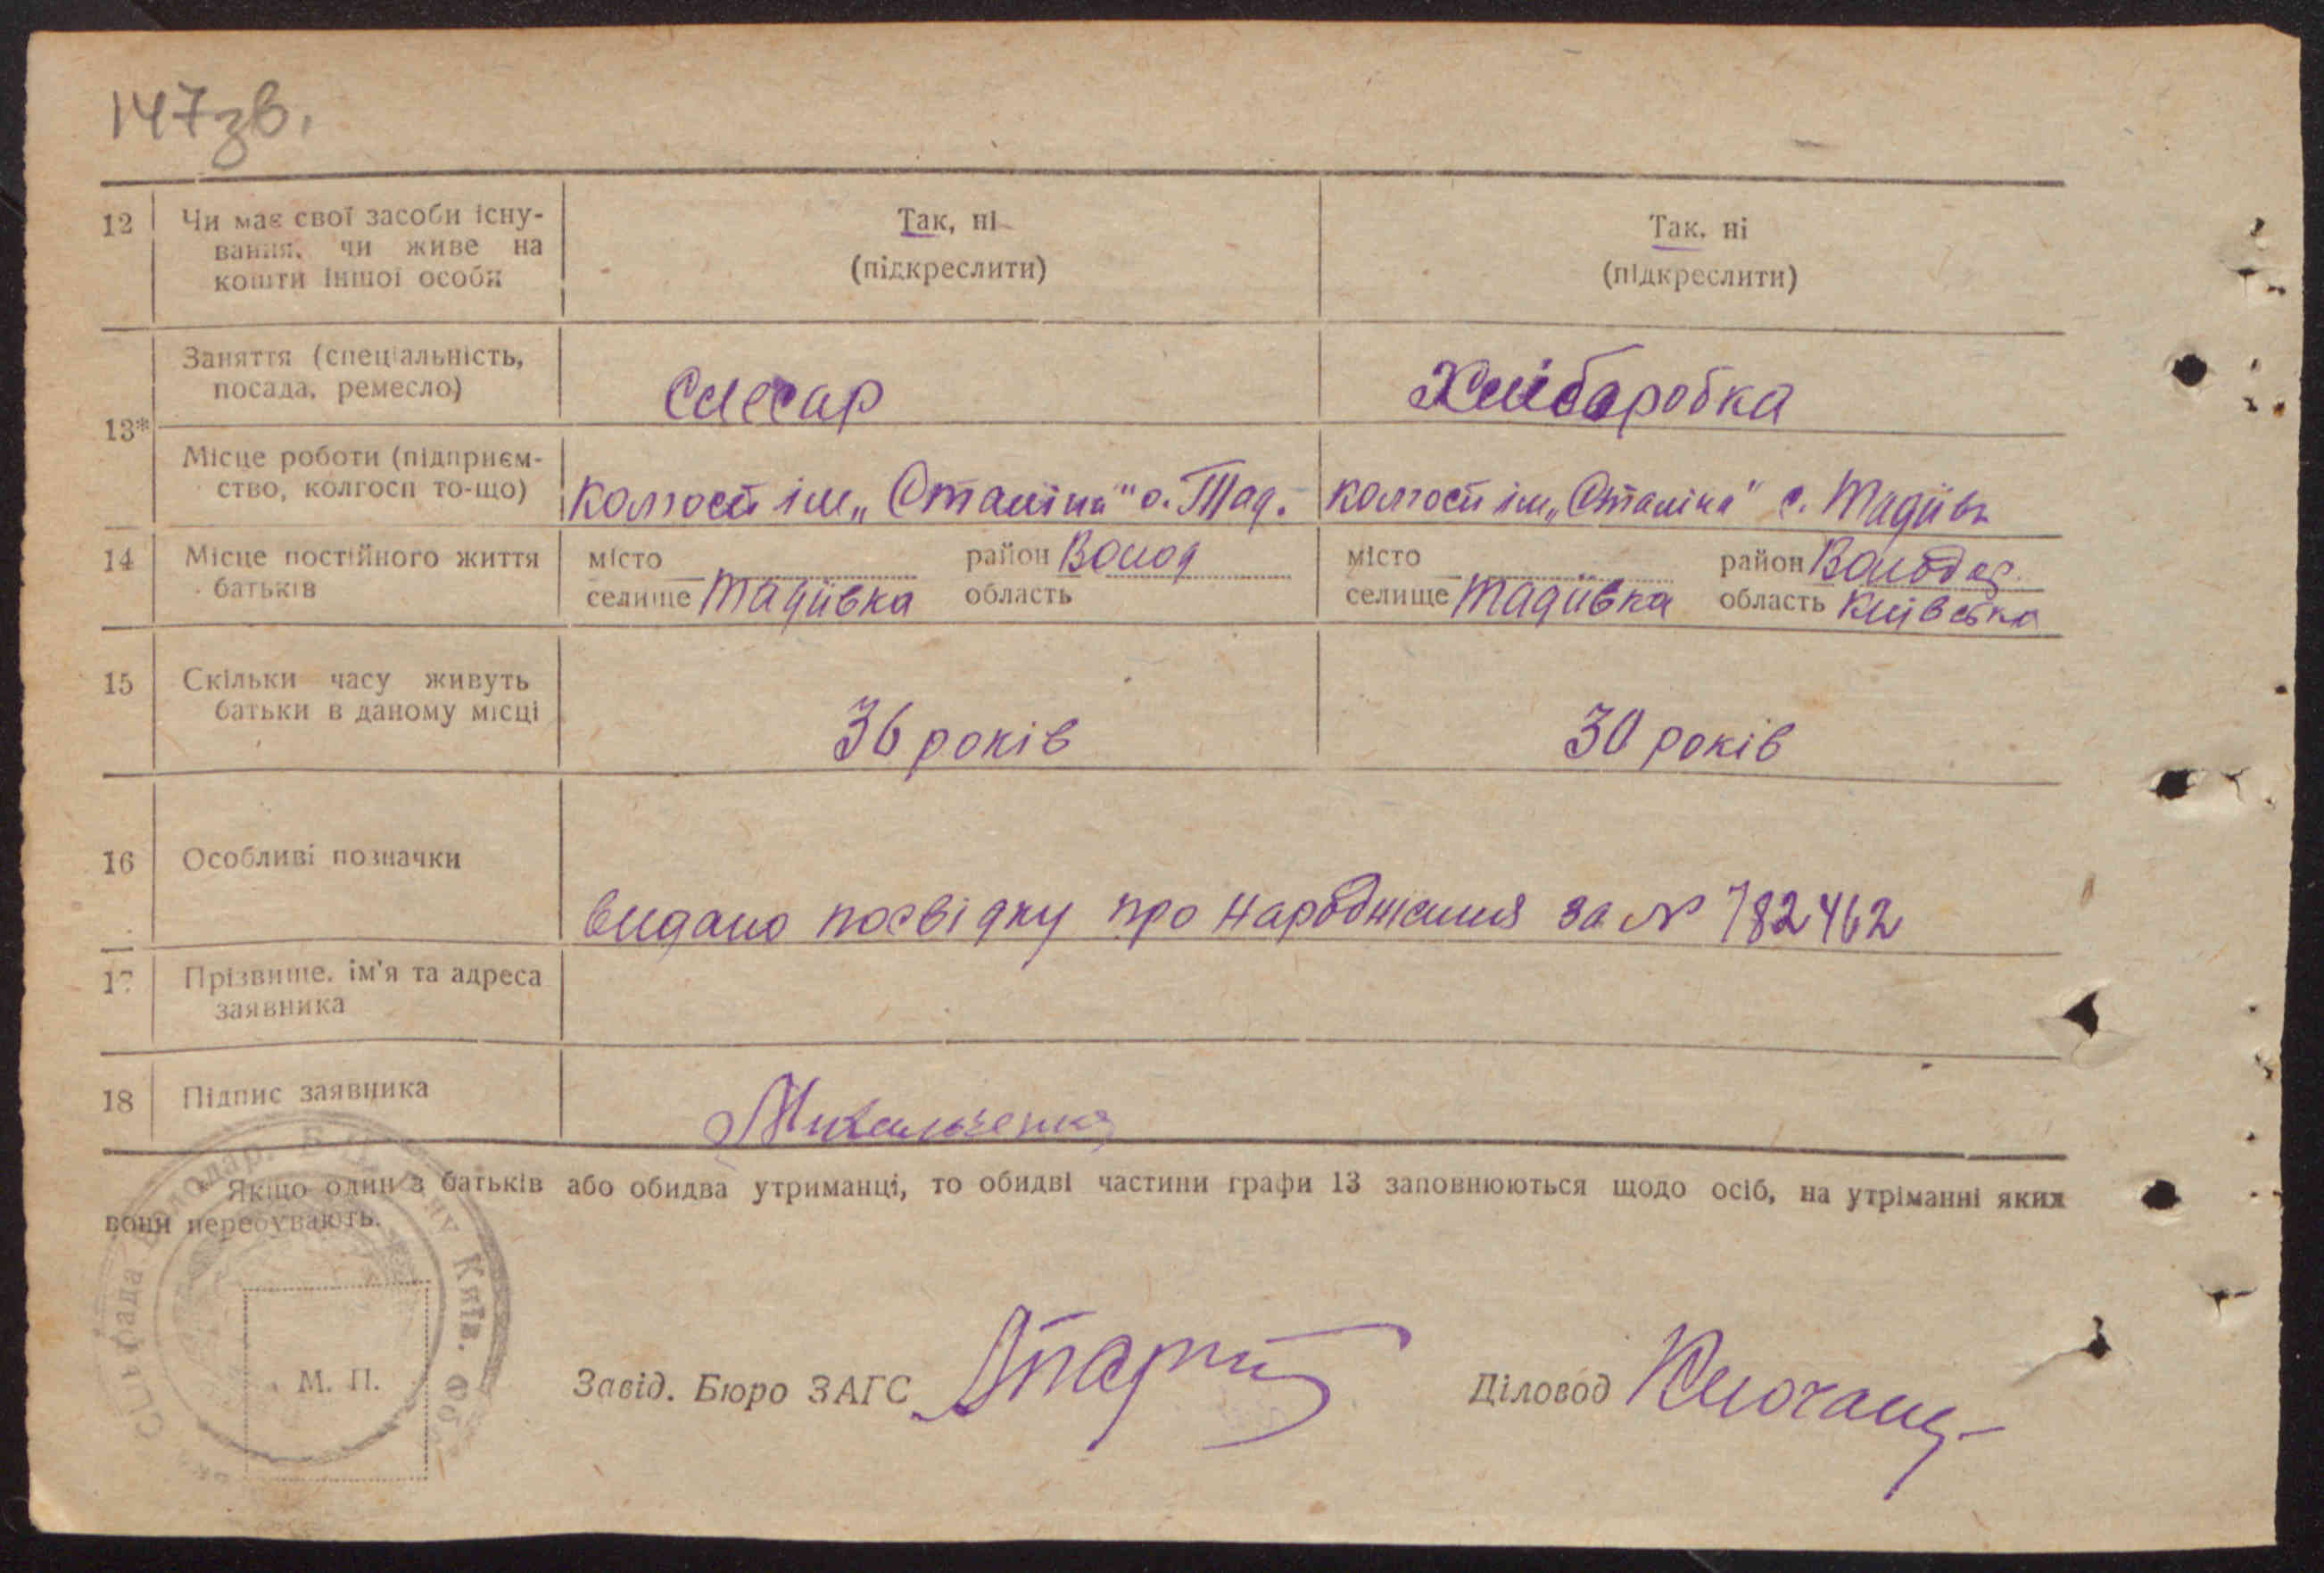 147зв.
12 Чи має свої засоби існу-
вання, чи живе на
кошти іншої особи
Так, ні
(підкреслити)
Так, ні
(підкреслити)
13*
Заняття (спеціальність,
посада, ремесло)
Слесар
Хлібаробка
Місце роботи (підприєм-
ство, колгосп то-що)
колгосп ім. „Сталіна" с. Тад.
колгосп ім. „Сталіна" с. Тадіївк
14 Місце постійного життя
батьків
місто район Волод
селище Тадіївка область
місто район Володар.
селище Тадіївка область Київська
15 Скільки часу живуть
батьки в даному місці
36 років
30 років
16 Особливі позначки
видано посвідку про народження за № 782462
17 Прізвище, ім'я та адреса
заявника
18 Підпис заявника
Якщо один з батьків або обидва утриманці, то обидві частини графи 13 заповнюються щодо осіб, на утріманні яких
вони перебувають.
М. П.
Завід. Бюро ЗАГС
Діловод